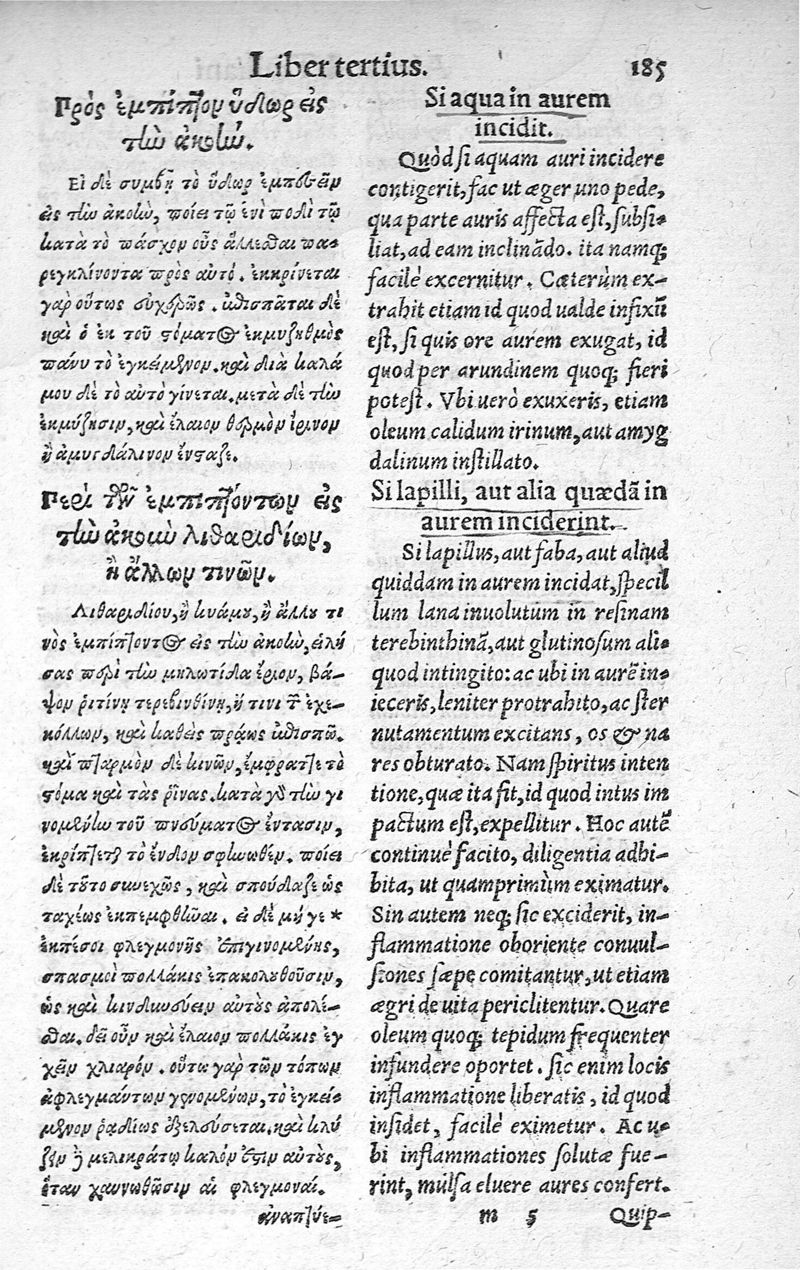 Liber tertius. 185
Πρὸς ἐμπίπτον ὕδωρ εἰς
τὴν ἀκοήν.
Εἰ δὲ συμβῇ τὸ ὕδωρ ἐμπεσεῖν
εἰς τὴν ἀκοὴν, ποίει τῷ ἑνὶ ποδὶ τῷ
κατὰ τὸ πάσχον οὖς ἅλλεσθαι πα-
ρεγκλίνοντα πρὸς αὐτό. ἐκκρίνεται
γὰρ οὕτως εὐχερῶς. ἐπισπᾶται δὲ
καὶ ὁ ἐκ τοῦ στόματος ἐκμυζηθμὸς
πάνυ τὸ ἐγκείμενον. καὶ διὰ καλά
μου δὲ τὸ αὐτὸ γίνεται. μετὰ δὲ τὴν
ἐκμύζησιν, καὶ ἔλαιον θερμὸν ἴρινον
ἢ ἀμυγδάλινον ἔνσταζε.
Περὶ τῶν ἐμπιπτόντων εἰς
τὴν ἀκοὴν λιθαριδίων,
ἢ ἄλλων τινῶν.
Λιθαριδίου, ἢ κυάμου, ἢ ἄλλου τι
νὸς ἐμπίπτοντος εἰς τὴν ἀκοὴν, εἰλή
σας περὶ τὴν μηλωτίδα ἔριον, βά-
ψον ῥιτίνῃ τερεβινθίνῃ, ἤ τινι τῶν ἐχε-
κόλλων, καὶ καθεὶς πράως ἐπισπῶ.
καὶ πταρμὸν δὲ κινῶν, ἔμφραττε τὸ
στόμα καὶ τὰς ῥῖνας. κατὰ γὰρ τὴν γι
νομένην τοῦ πνεύματος ἔντασιν,
ἐκρίπτεται τὸ ἔνδον σφηνωθέν. ποίει
δὲ τοῦτο συνεχῶς, καὶ σπούδαζε ὡς
ταχέως ἐκπεμφθῆναι. εἰ δὲ μή γε *
ἐκπέσοι φλεγμονῆς ἐπιγινομένης,
σπασμοὶ πολλάκις ἐπακολουθοῦσιν,
ὡς καὶ κινδυνεύειν αὐτοὺς ἀπολέ-
σθαι. δεῖ οὖν καὶ ἔλαιον πολλάκις ἐγ
χεῖν χλιαρόν. οὕτω γὰρ τῶν τόπων
ἀφλεγμάντων γενομένων, τὸ ἐγκεί-
μενον ῥαδίως ἐξελεύσεται. καὶ κλύ
ζειν δὲ μελικράτῳ καλόν ἐστιν αὐτοὺς,
ὅταν χαυνωθῶσιν αἱ φλεγμοναί.
ἀναπτύε-
Si aqua in aurem
incidit.
Quòd si aquam auri incidere
contigerit, fac ut æger uno pede,
qua parte auris affecta est, subsi-
liat, ad eam inclinādo. ita namq;
facilè excernitur. Cæterùm ex-
trahit etiam id quod ualde infixū
est, si quis ore aurem exugat, id
quod per arundinem quoq; fieri
potest. Vbi uerò exuxeris, etiam
oleum calidum irinum, aut amyg
dalinum instillato.
Si lapilli, aut alia quædā in
aurem inciderint.
Si lapillus, aut faba, aut aliud
quiddam in aurem incidat, specil
lum lana inuolutum in resinam
terebinthinā, aut glutinosum ali-
quod intingito: ac ubi in aurē in-
ieceris, leniter protrahito, ac ster
nutamentum excitans, os & na
res obturato. Nam spiritus inten
tione, quæ ita fit, id quod intus im
pactum est, expellitur. Hoc autē
continuè facito, diligentia adhi-
bita, ut quamprimùm eximatur.
Sin autem neq; sic exciderit, in-
flammatione oboriente conuul-
siones sæpe comitantur, ut etiam
ægri de uita periclitentur. Quare
oleum quoq; tepidum frequenter
infundere oportet. sic enim locis
inflammatione liberatis, id quod
insidet, facilè eximetur. Ac u-
bi inflammationes solutæ fue-
rint, mulsa eluere aures confert.
m 5 Quip-